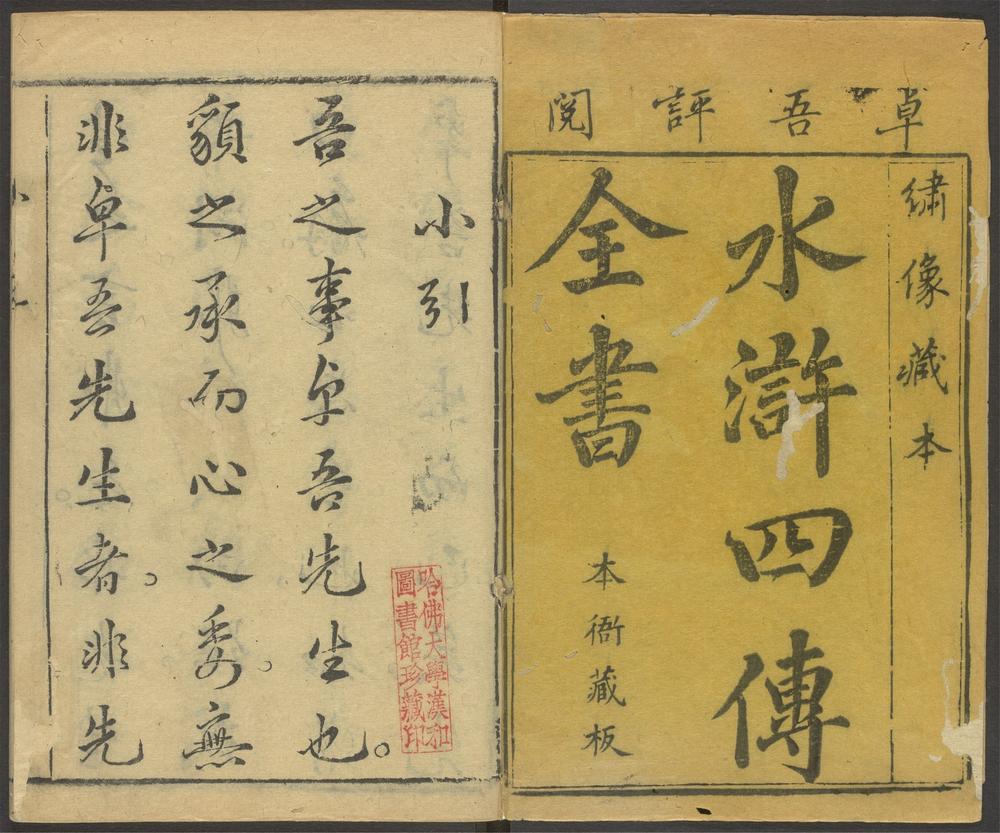 卓吾評閱
繡像藏本
水滸四傳
全書
本衙藏板
小引
吾之事卓吾先生也。
貌之承而心之委。無
非卓吾先生者。非先
哈佛大學漢和
圖書館珍藏印